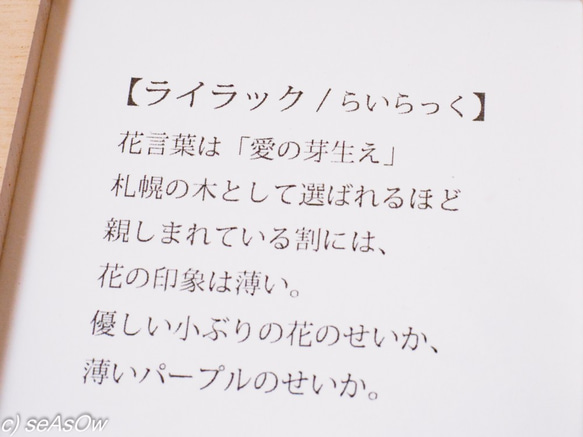 【ライラック / らいらっく】
花言葉は「愛の芽生え」
札幌の木として選ばれるほど
親しまれている割には、
花の印象は薄い。
優しい小ぶりの花のせいか、
薄いパープルのせいか。
c) seAsOw